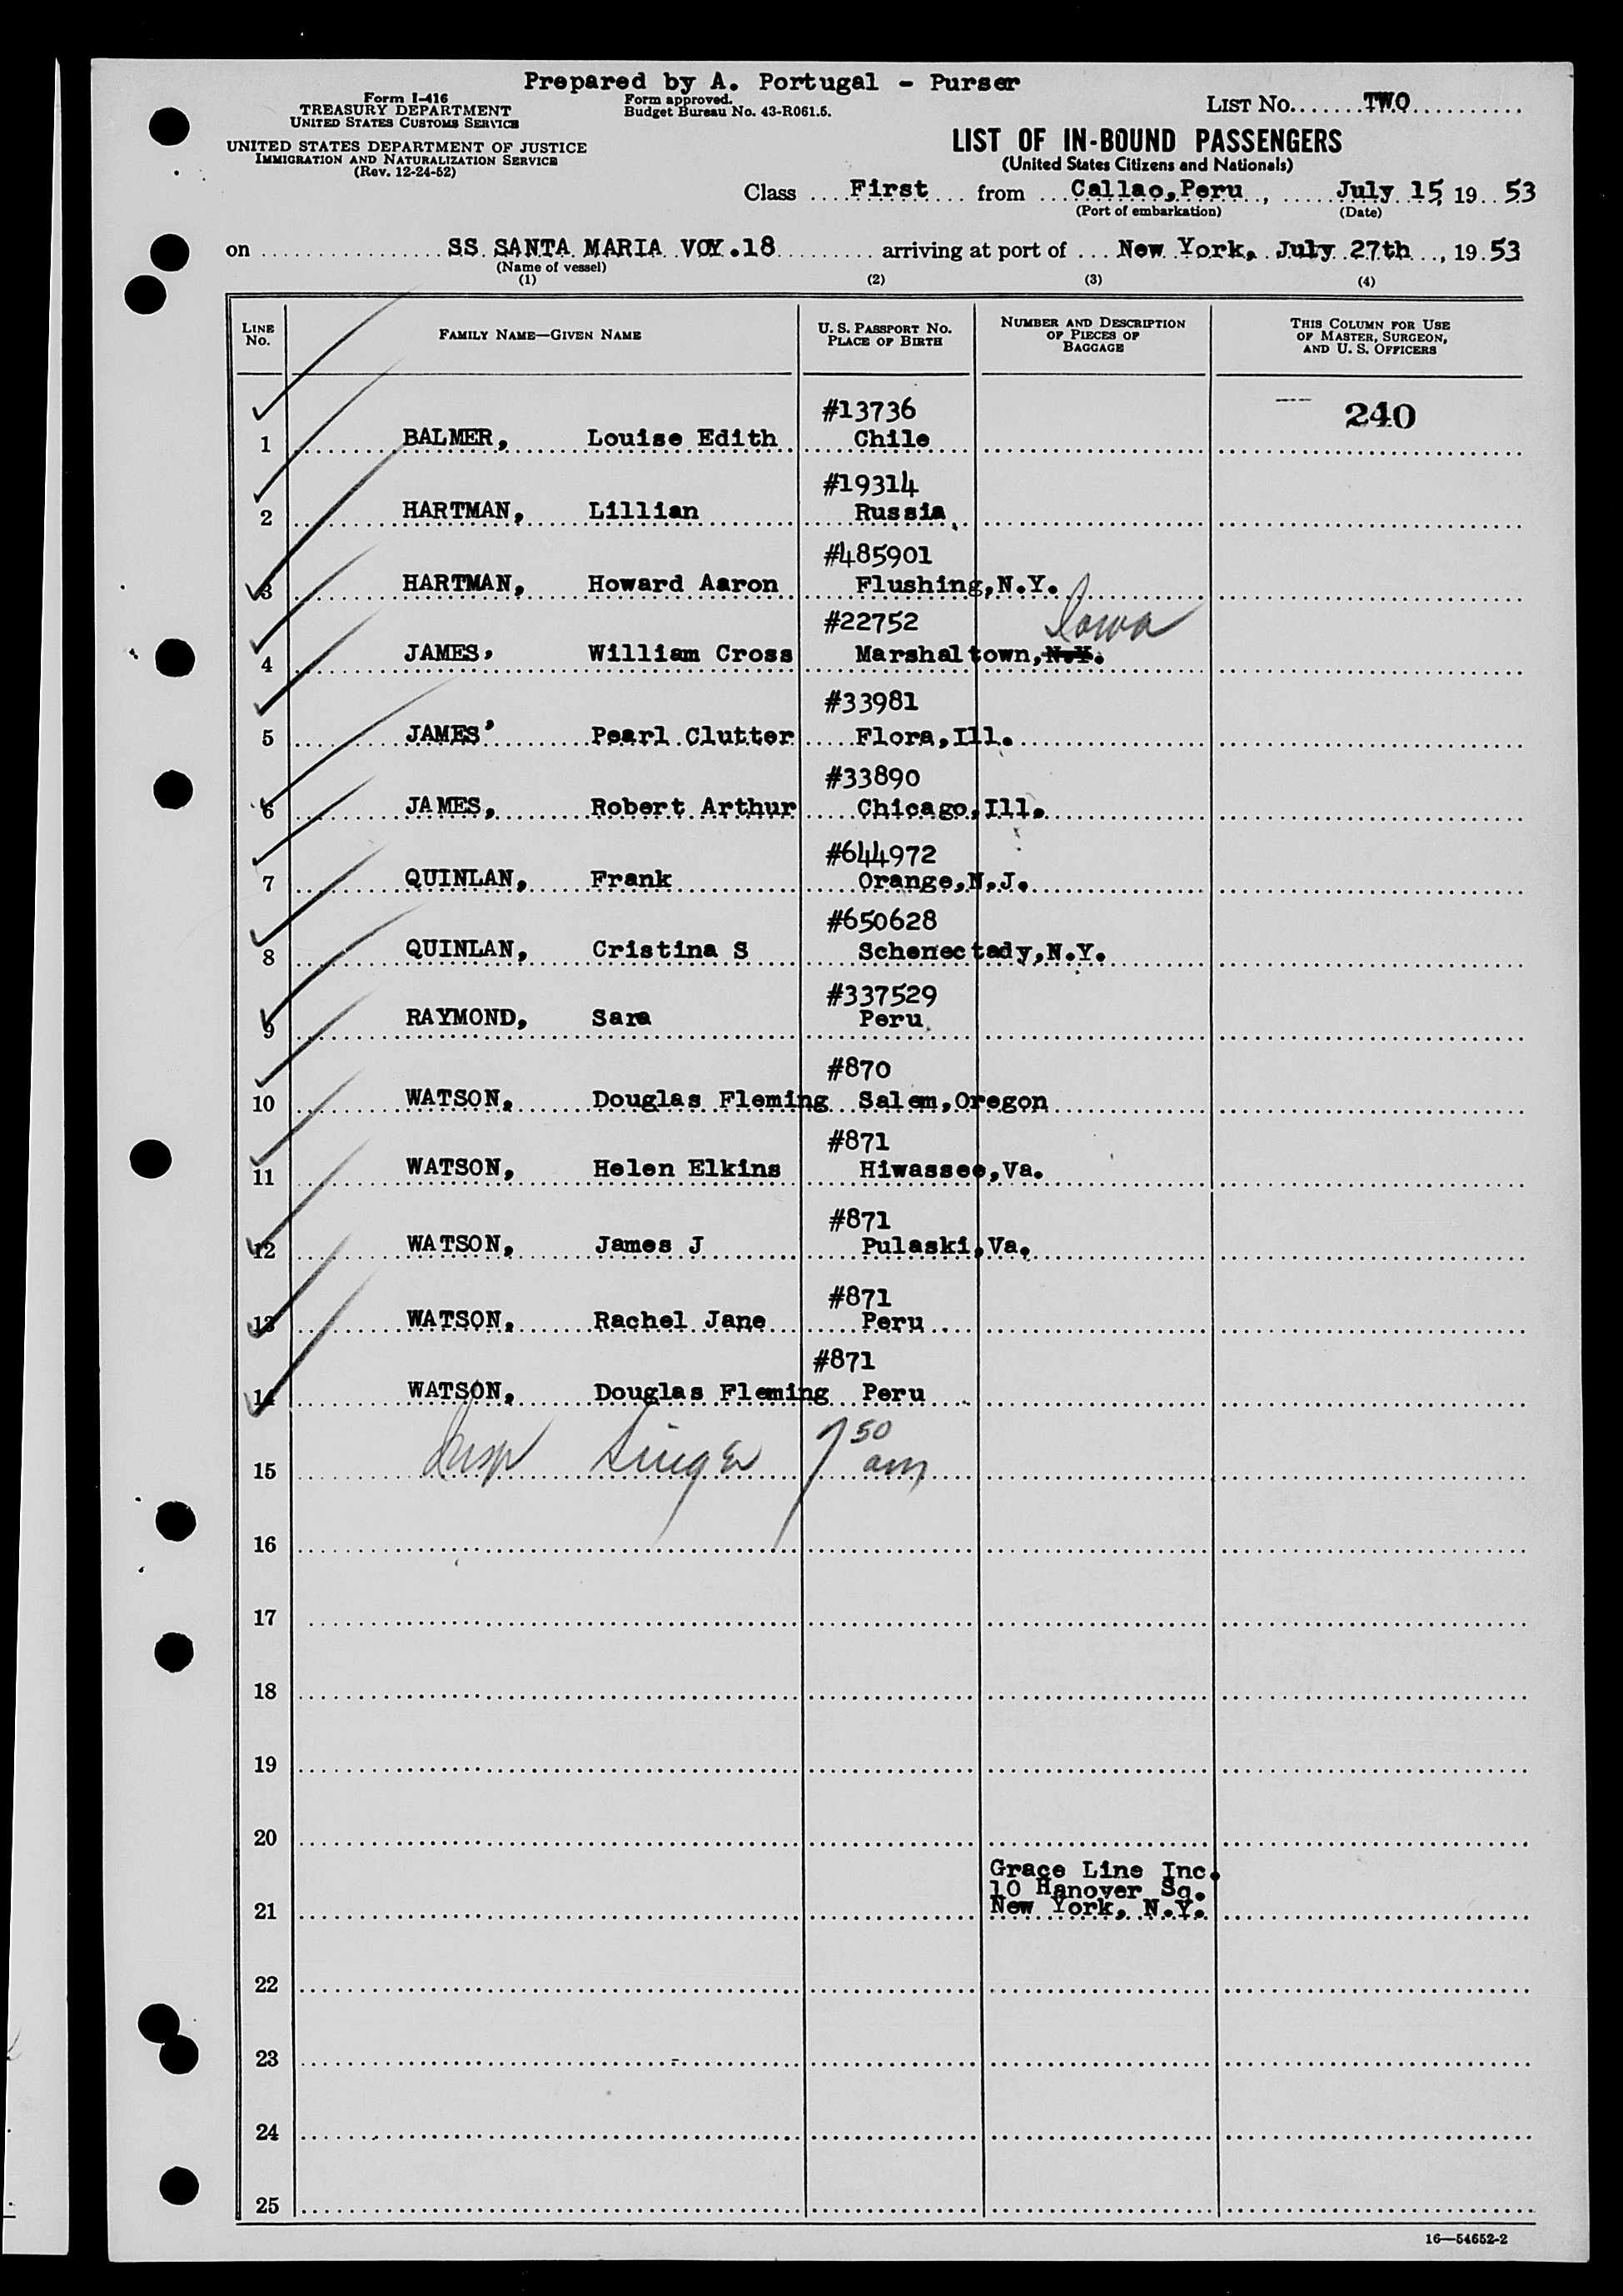 Prepared by A. Portugal - Purser
Form I-416
TREASURY DEPARTMENT
UNITED STATES CUSTOMS SERVICE
UNITED STATES DEPARTMENT OF JUSTICE
IMMIGRATION AND NATURALIZATION SERVICE
(Rev. 12-24-52)
Form approved.
Budget Bureau No. 43-R061.5.
LIST No. TWO
LIST OF IN-BOUND PASSENGERS
(United States Citizens and Nationals)
Class First from Callao, Peru, July 15, 19 53
(Port of embarkation) (Date)
on SS SANTA MARIA VOY.18 arriving at port of New York, July 27th, 19 53
(Name of vessel)
(1) (2) (3) (4)
LINE No. FAMILY NAME—GIVEN NAME U. S. PASSPORT No. PLACE OF BIRTH NUMBER AND DESCRIPTION OF PIECES OF BAGGAGE THIS COLUMN FOR USE OF MASTER, SURGEON, AND U. S. OFFICERS
#13736 240
1 BALMER, Louise Edith Chile
#19314
2 HARTMAN, Lillian Russia
#485901
3 HARTMAN, Howard Aaron Flushing, N.Y.
#22752 Iowa
4 JAMES, William Cross Marshaltown, N.Y.
#33981
5 JAMES' Pearl Clutter Flora, Ill.
#33890
6 JAMES, Robert Arthur Chicago, Ill.
#644972
7 QUINLAN, Frank Orange, N.J.
#650628
8 QUINLAN, Cristina S Schenectady, N.Y.
#337529
9 RAYMOND, Sara Peru
#870
10 WATSON, Douglas Fleming Salem, Oregon
#871
11 WATSON, Helen Elkins Hiwassee, Va.
#871
12 WATSON, James J Pulaski, Va.
#871
13 WATSON, Rachel Jane Peru
#871
14 WATSON, Douglas Fleming Peru
15 Insp Singer 7 50 am
16
17
18
19
20
Grace Line Inc.
10 Hanover Sq.
21 New York, N.Y.
22
23
24
25
16—54652-2